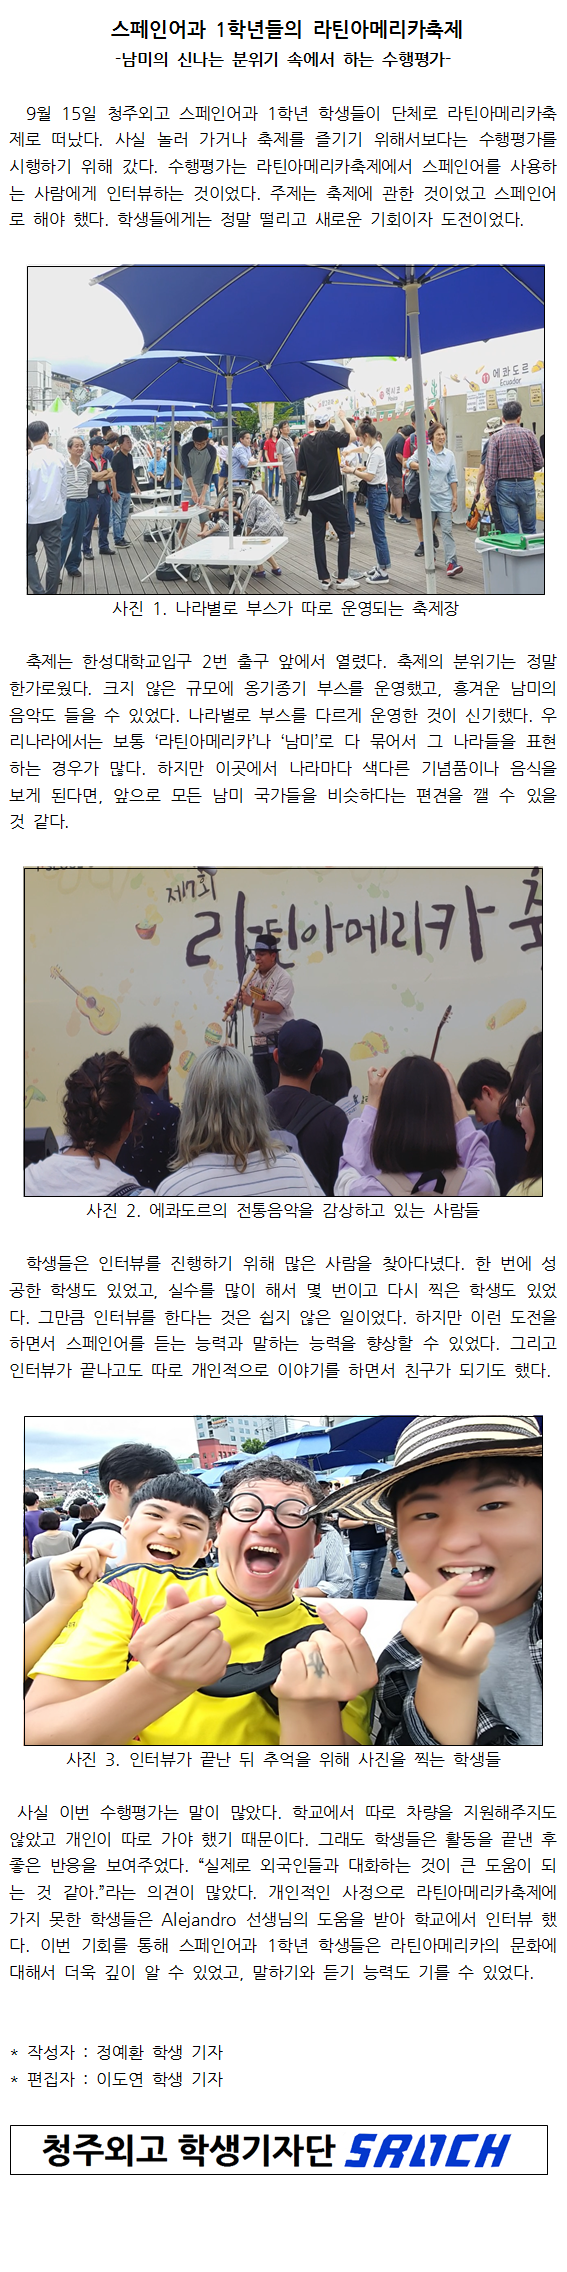 스페인어과 1학년들의 라틴아메리카축제
-남미의 신나는 분위기 속에서 하는 수행평가-
9월 15일 청주외고 스페인어과 1학년 학생들이 단체로 라틴아메리카축
제로 떠났다. 사실 놀러 가거나 축제를 즐기기 위해서보다는 수행평가를
시행하기 위해 갔다. 수행평가는 라틴아메리카축제에서 스페인어를 사용하
는 사람에게 인터뷰하는 것이었다. 주제는 축제에 관한 것이었고 스페인어
로 해야 했다. 학생들에게는 정말 떨리고 새로운 기회이자 도전이었다.
멕시코
11 에콰도르
Ecuador
사진 1. 나라별로 부스가 따로 운영되는 축제장
축제는 한성대학교입구 2번 출구 앞에서 열렸다. 축제의 분위기는 정말
한가로웠다. 크지 않은 규모에 옹기종기 부스를 운영했고, 흥겨운 남미의
음악도 들을 수 있었다. 나라별로 부스를 다르게 운영한 것이 신기했다. 우
리나라에서는 보통 ‘라틴아메리카’나 ‘남미’로 다 묶어서 그 나라들을 표현
하는 경우가 많다. 하지만 이곳에서 나라마다 색다른 기념품이나 음식을
보게 된다면, 앞으로 모든 남미 국가들을 비슷하다는 편견을 깰 수 있을
것 같다.
제7회
라틴아메리카 축
사진 2. 에콰도르의 전통음악을 감상하고 있는 사람들
학생들은 인터뷰를 진행하기 위해 많은 사람을 찾아다녔다. 한 번에 성
공한 학생도 있었고, 실수를 많이 해서 몇 번이고 다시 찍은 학생도 있었
다. 그만큼 인터뷰를 한다는 것은 쉽지 않은 일이었다. 하지만 이런 도전을
하면서 스페인어를 듣는 능력과 말하는 능력을 향상할 수 있었다. 그리고
인터뷰가 끝나고도 따로 개인적으로 이야기를 하면서 친구가 되기도 했다.
사진 3. 인터뷰가 끝난 뒤 추억을 위해 사진을 찍는 학생들
사실 이번 수행평가는 말이 많았다. 학교에서 따로 차량을 지원해주지도
않았고 개인이 따로 가야 했기 때문이다. 그래도 학생들은 활동을 끝낸 후
좋은 반응을 보여주었다. “실제로 외국인들과 대화하는 것이 큰 도움이 되
는 것 같아.”라는 의견이 많았다. 개인적인 사정으로 라틴아메리카축제에
가지 못한 학생들은 Alejandro 선생님의 도움을 받아 학교에서 인터뷰 했
다. 이번 기회를 통해 스페인어과 1학년 학생들은 라틴아메리카의 문화에
대해서 더욱 깊이 알 수 있었고, 말하기와 듣기 능력도 기를 수 있었다.
* 작성자 : 정예환 학생 기자
* 편집자 : 이도연 학생 기자
청주외고 학생기자단 SROCH